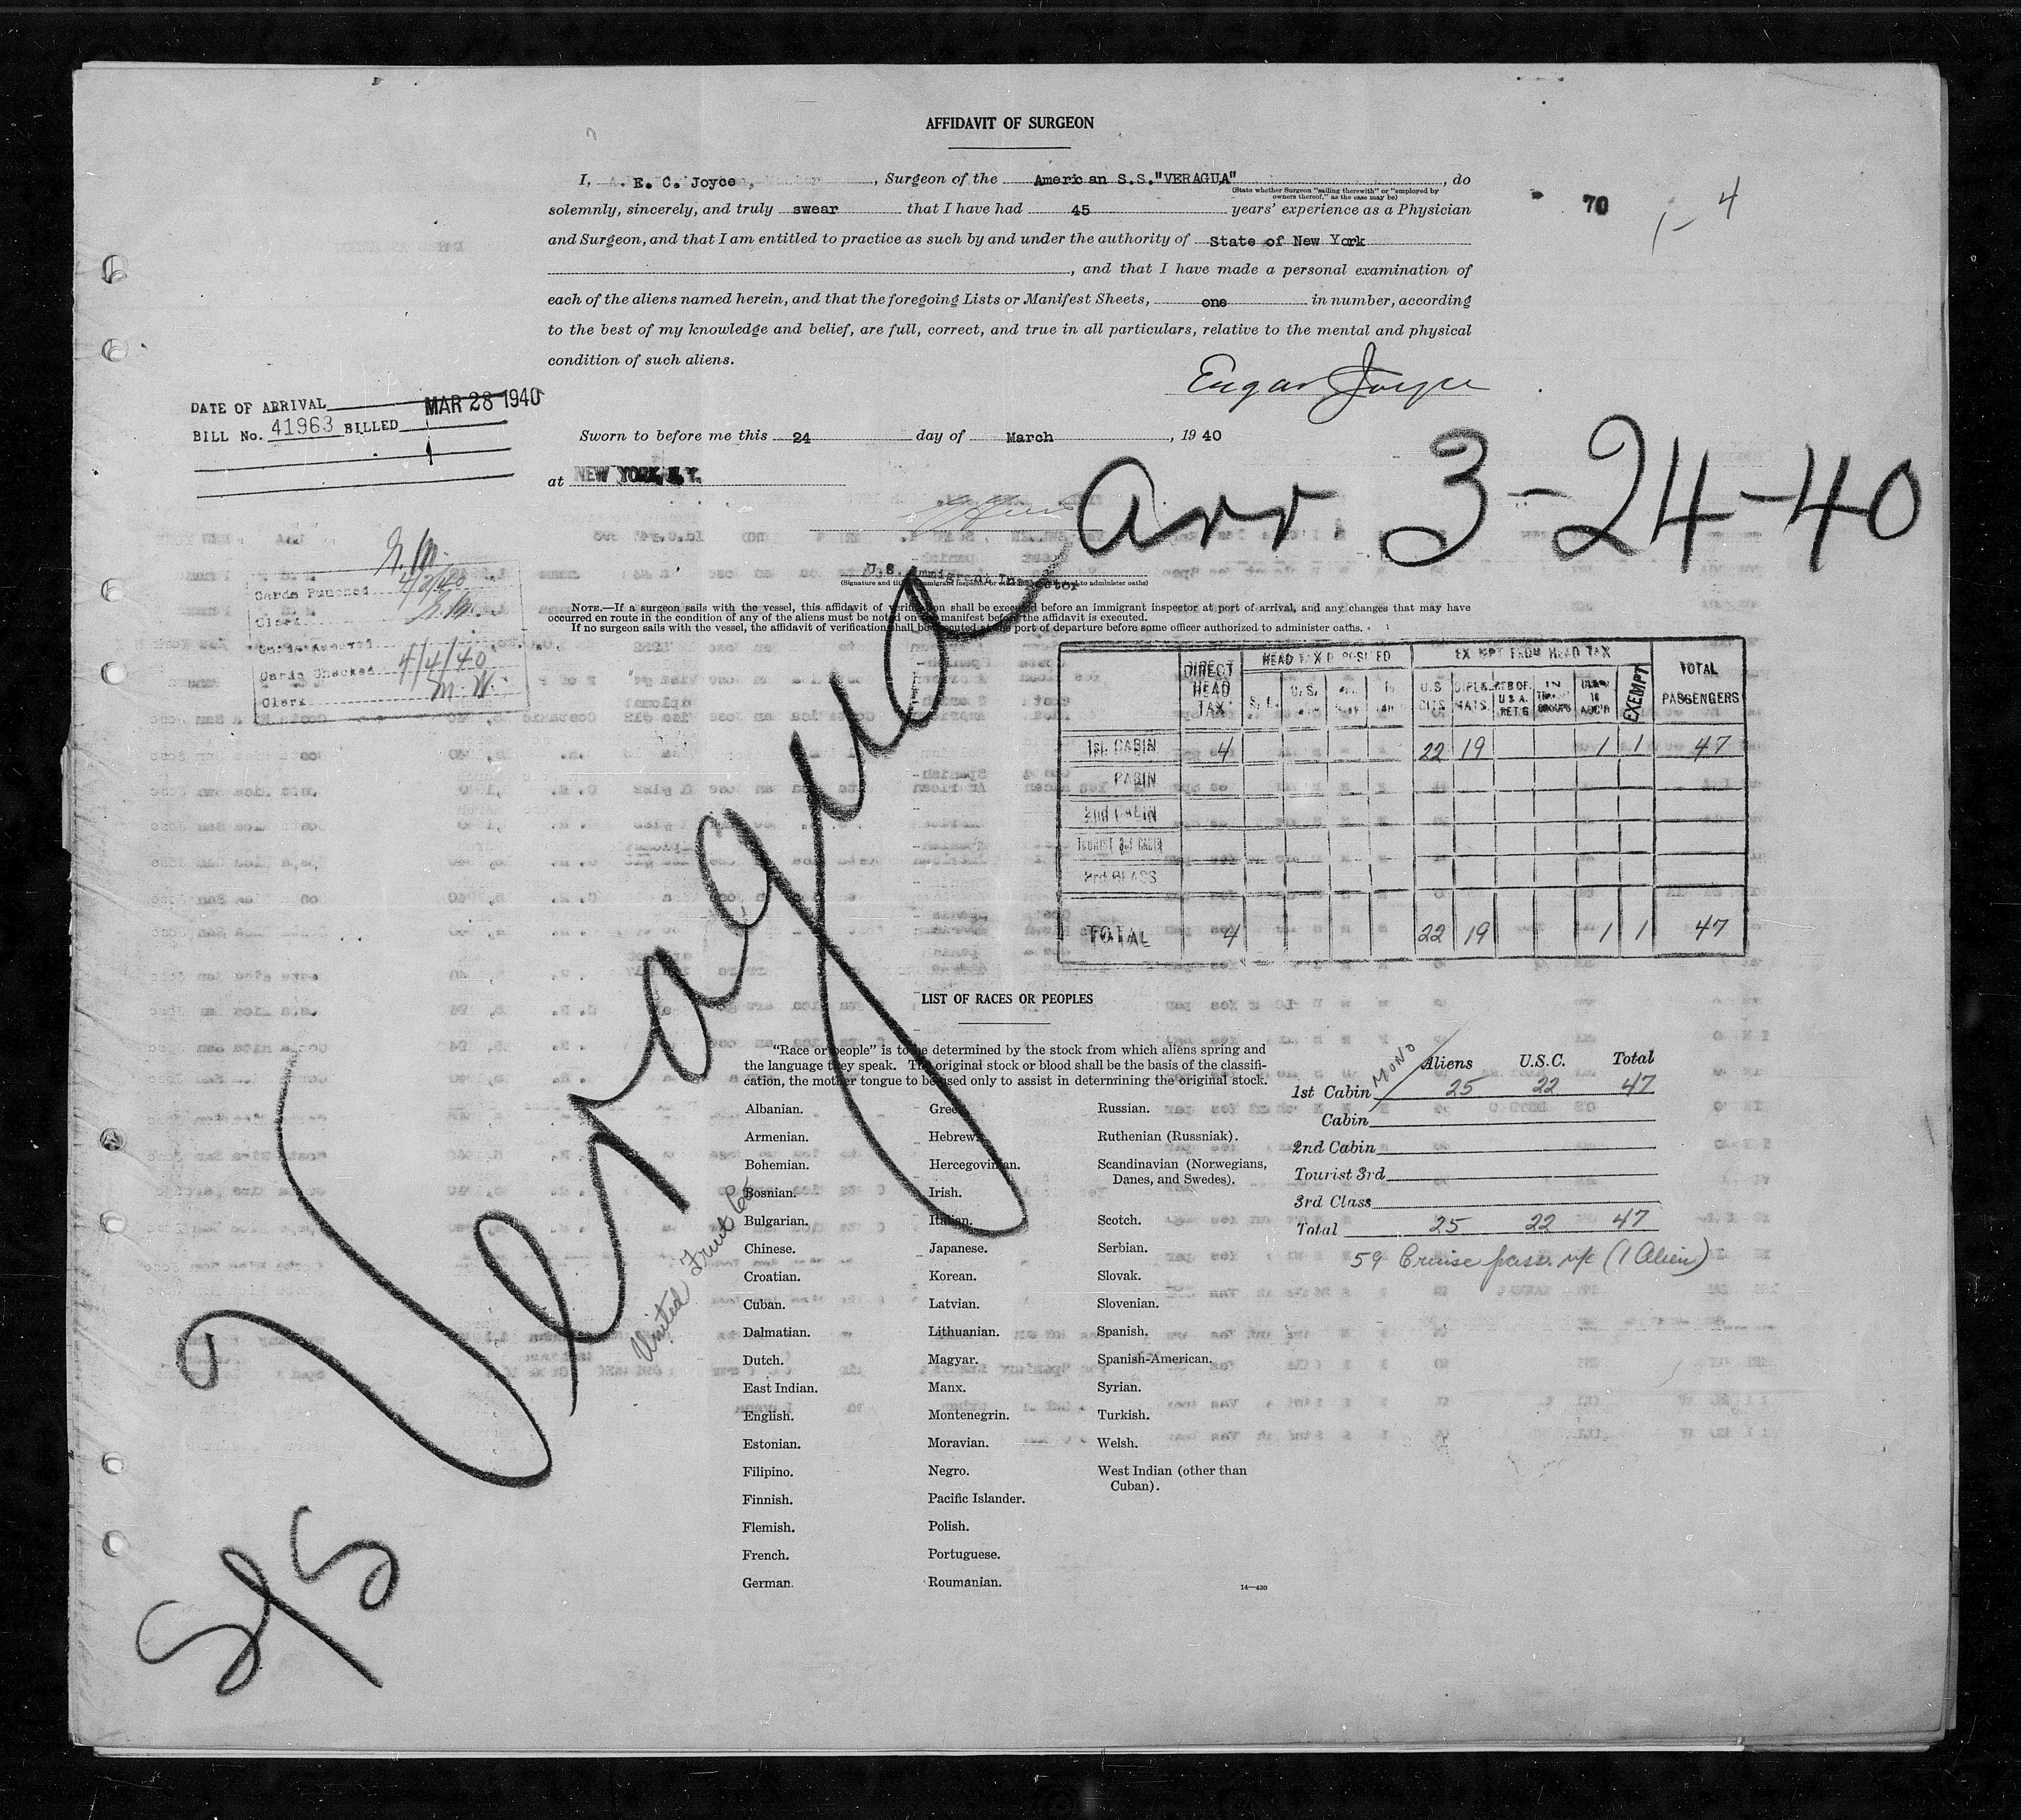 AFFIDAVIT OF SURGEON
I, E. C. Joyce, Surgeon of the American S.S."VERAGUA", do
(State whether Surgeon "sailing therewith" or "employed by
owners thereof," as the case may be)
solemnly, sincerely, and truly swear that I have had 45 years' experience as a Physician
and Surgeon, and that I am entitled to practice as such by and under the authority of State of New York
, and that I have made a personal examination of
each of the aliens named herein, and that the foregoing Lists or Manifest Sheets, one in number, according
to the best of my knowledge and belief, are full, correct, and true in all particulars, relative to the mental and physical
condition of such aliens.
70
1-4
Edgar Joyce
DATE OF ARRIVAL MAR 28 1940
BILL No. 41963 BILLED
Sworn to before me this 24 day of March, 1940
at NEW YORK, N.Y.
arr 3-24-40
U.S. Immigrant Inspector
(Signature and title of immigrant inspector or other officer authorized to administer oaths)
Cards Punched 4/2/40
Clerk
Cards Checked 4/4/40
Clerk M.W.
NOTE.—If a surgeon sails with the vessel, this affidavit of verification shall be executed before an immigrant inspector at port of arrival, and any changes that may have
occurred en route in the condition of any of the aliens must be noted on the manifest before the affidavit is executed.
If no surgeon sails with the vessel, the affidavit of verification shall be executed at the port of departure before some officer authorized to administer oaths.
DIRECT HEAD TAX HEAD TAX DEPOSITED EXEMPT FROM HEAD TAX TOTAL PASSENGERS
U.S. CITS. EXEMPT
1st CABIN 4 22 19 1 1 47
CABIN
2nd CABIN
TOURIST 3rd CABIN
3rd CLASS
TOTAL 4 22 19 1 1 47
S/S Veragua
United Fruit Co
LIST OF RACES OR PEOPLES
"Race or people" is to be determined by the stock from which aliens spring and
the language they speak. The original stock or blood shall be the basis of the classifi-
cation, the mother tongue to be used only to assist in determining the original stock.
Albanian.
Armenian.
Bohemian.
Bosnian.
Bulgarian.
Chinese.
Croatian.
Cuban.
Dalmatian.
Dutch.
East Indian.
English.
Estonian.
Filipino.
Finnish.
Flemish.
French.
German.
Greek.
Hebrew.
Hercegovinian.
Irish.
Italian.
Japanese.
Korean.
Latvian.
Lithuanian.
Magyar.
Manx.
Montenegrin.
Moravian.
Negro.
Pacific Islander.
Polish.
Portuguese.
Roumanian.
Russian.
Ruthenian (Russniak).
Scandinavian (Norwegians,
Danes, and Swedes).
Scotch.
Serbian.
Slovak.
Slovenian.
Spanish.
Spanish-American.
Syrian.
Turkish.
Welsh.
West Indian (other than
Cuban).
14—430
MONO
Aliens U.S.C. Total
1st Cabin 25 22 47
Cabin
2nd Cabin
Tourist 3rd
3rd Class
Total 25 22 47
59 Cruise pass. (1 Alien)